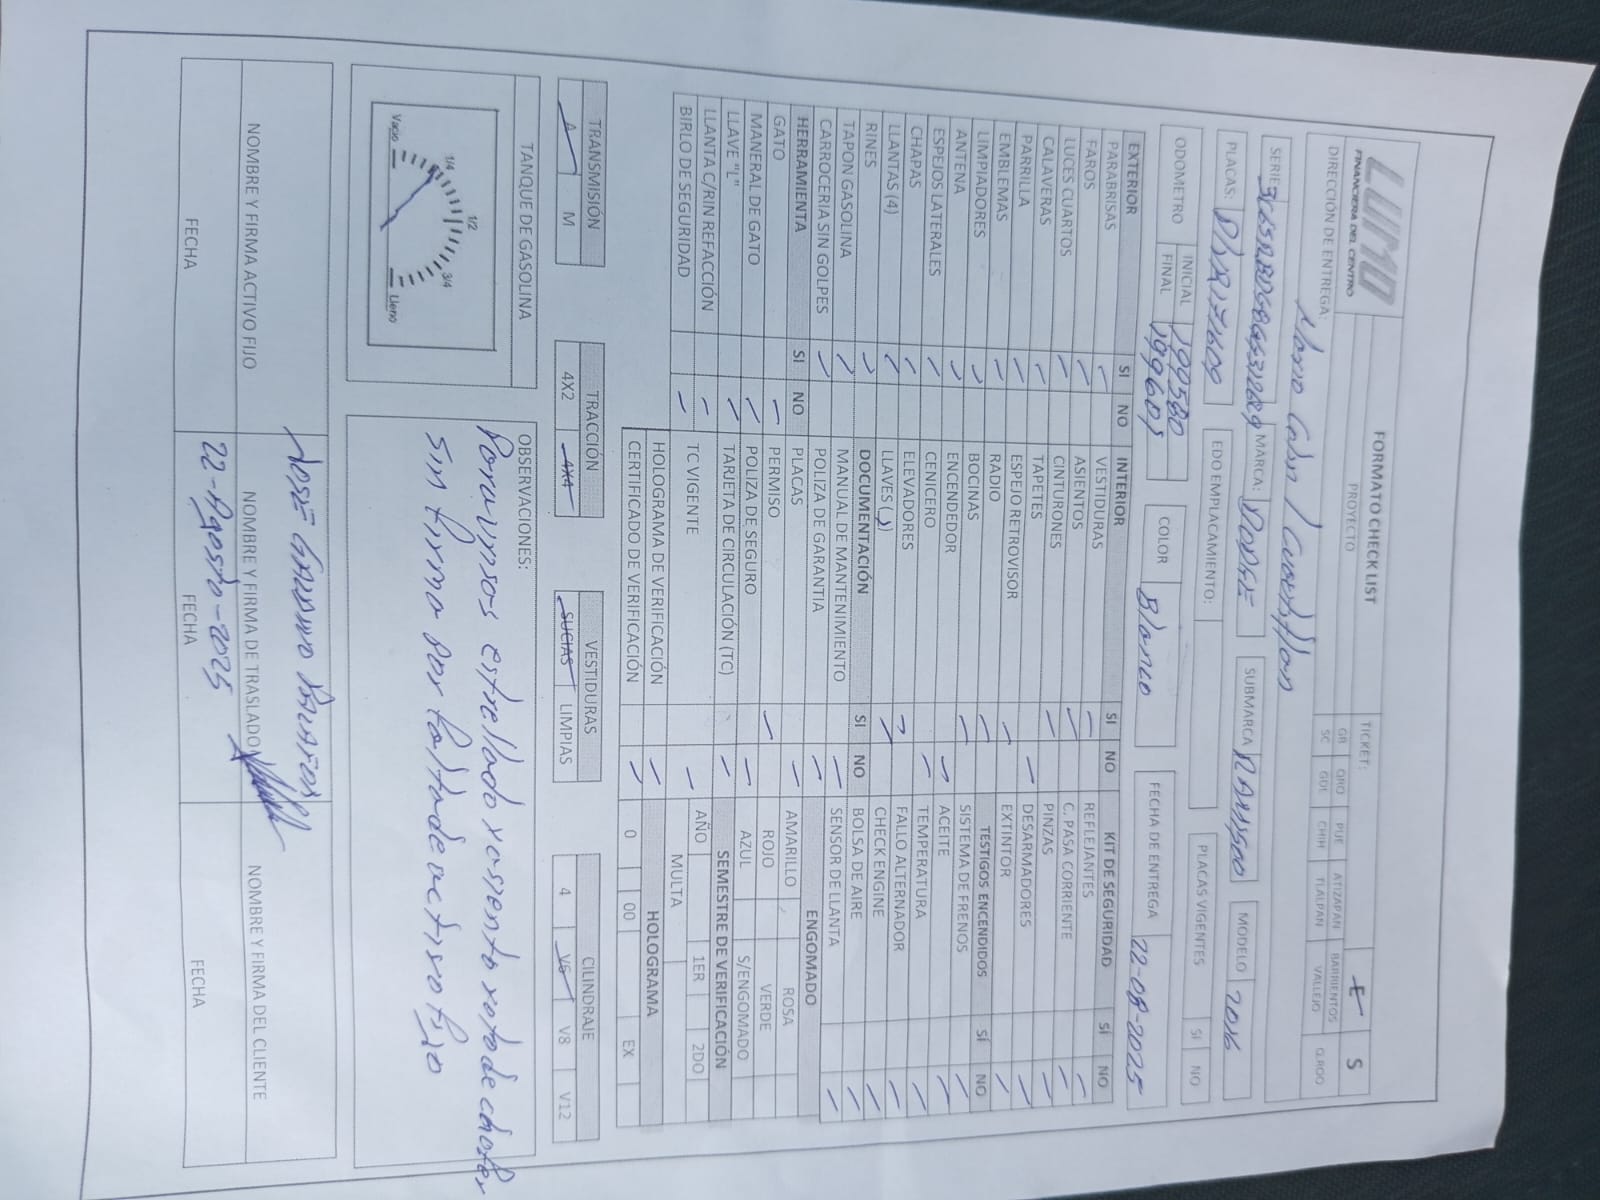 LUMO
FINANCIERA DEL CENTRO
FORMATO CHECK LIST
PROYECTO
TICKET:
E S
GB QRO PUE ATIZAPAN BARRIENTOS
SC GDL CHIH TLALPAN VALLEJO Q.ROO
DIRECCIÓN DE ENTREGA:
SERIE: MARCA: DODGE SUBMARCA MODELO 2016
PLACAS: EDO EMPLACAMIENTO: PLACAS VIGENTES SI NO
ODOMETRO INICIAL 199580 COLOR Blanco FECHA DE ENTREGA 22-08-2025
FINAL
EXTERIOR SI NO INTERIOR SI NO KIT DE SEGURIDAD SÍ NO
PARABRISAS VESTIDURAS REFLEJANTES
FAROS ASIENTOS C. PASA CORRIENTE
LUCES CUARTOS CINTURONES PINZAS
CALAVERAS TAPETES DESARMADORES
PARRILLA ESPEJO RETROVISOR EXTINTOR
EMBLEMAS RADIO TESTIGOS ENCENDIDOS SÍ NO
LIMPIADORES BOCINAS SISTEMA DE FRENOS
ANTENA ENCENDEDOR ACEITE
ESPEJOS LATERALES CENICERO TEMPERATURA
CHAPAS ELEVADORES FALLO ALTERNADOR
LLANTAS (4) LLAVES ( ) CHECK ENGINE
RINES DOCUMENTACIÓN SI NO BOLSA DE AIRE
TAPON GASOLINA MANUAL DE MANTENIMIENTO SENSOR DE LLANTA
CARROCERIA SIN GOLPES POLIZA DE GARANTIA ENGOMADO
HERRAMIENTA SI NO PLACAS AMARILLO ROSA
GATO PERMISO ROJO VERDE
MANERAL DE GATO POLIZA DE SEGURO AZUL S/ENGOMADO
LLAVE "L" TARJETA DE CIRCULACIÓN (TC) SEMESTRE DE VERIFICACIÓN
LLANTA C/RIN REFACCIÓN TC VIGENTE AÑO 1ER 2DO
BIRLO DE SEGURIDAD MULTA
HOLOGRAMA DE VERIFICACIÓN HOLOGRAMA
CERTIFICADO DE VERIFICACIÓN 0 00 EX
TRANSMISIÓN TRACCIÓN VESTIDURAS CILINDRAJE
A M 4X2 4X4 SUCIAS LIMPIAS 4 V6 V8 V12
TANQUE DE GASOLINA
Vacio 1/4 1/2 3/4 Lleno
OBSERVACIONES:
estrellado
sin firma por falta de activo fijo
JOSÉ
NOMBRE Y FIRMA ACTIVO FIJO NOMBRE Y FIRMA DE TRASLADO NOMBRE Y FIRMA DEL CLIENTE
22-Agosto-2025
FECHA FECHA FECHA